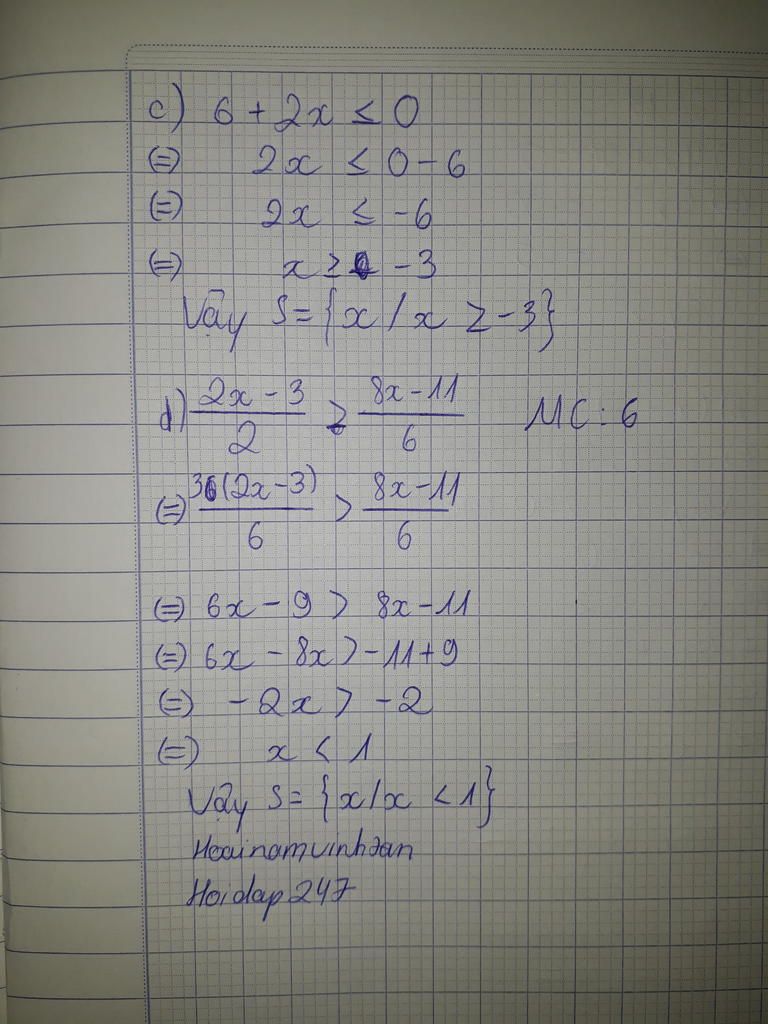 c) 6 + 2x ≤ 0
(=) 2x ≤ 0 - 6
(=) 2x ≤ -6
(=) x ≥ -3
Vậy S = {x / x ≥ -3}
d) \frac{2x - 3}{2} > \frac{8x - 11}{6} MC: 6
(=) \frac{3(2x - 3)}{6} > \frac{8x - 11}{6}
(=) 6x - 9 > 8x - 11
(=) 6x - 8x > -11 + 9
(=) -2x > -2
(=) x < 1
Vậy S = {x / x < 1}
Hoainamvinhdan
Hoidap247